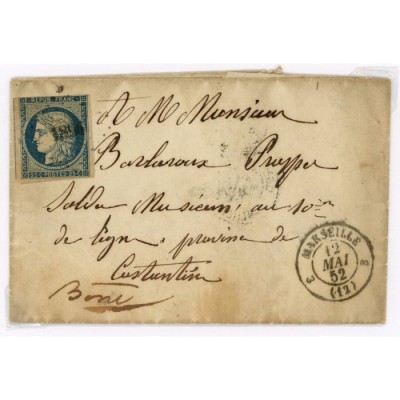 REPUB. FRANC.
25 C POSTES 25 C
A M Monsieur
Barbaroux
Soldat Musicien au 10e
de ligne province de
Costantine
Bone
MARSEILLE
12
MAI
52
(12)
3 3